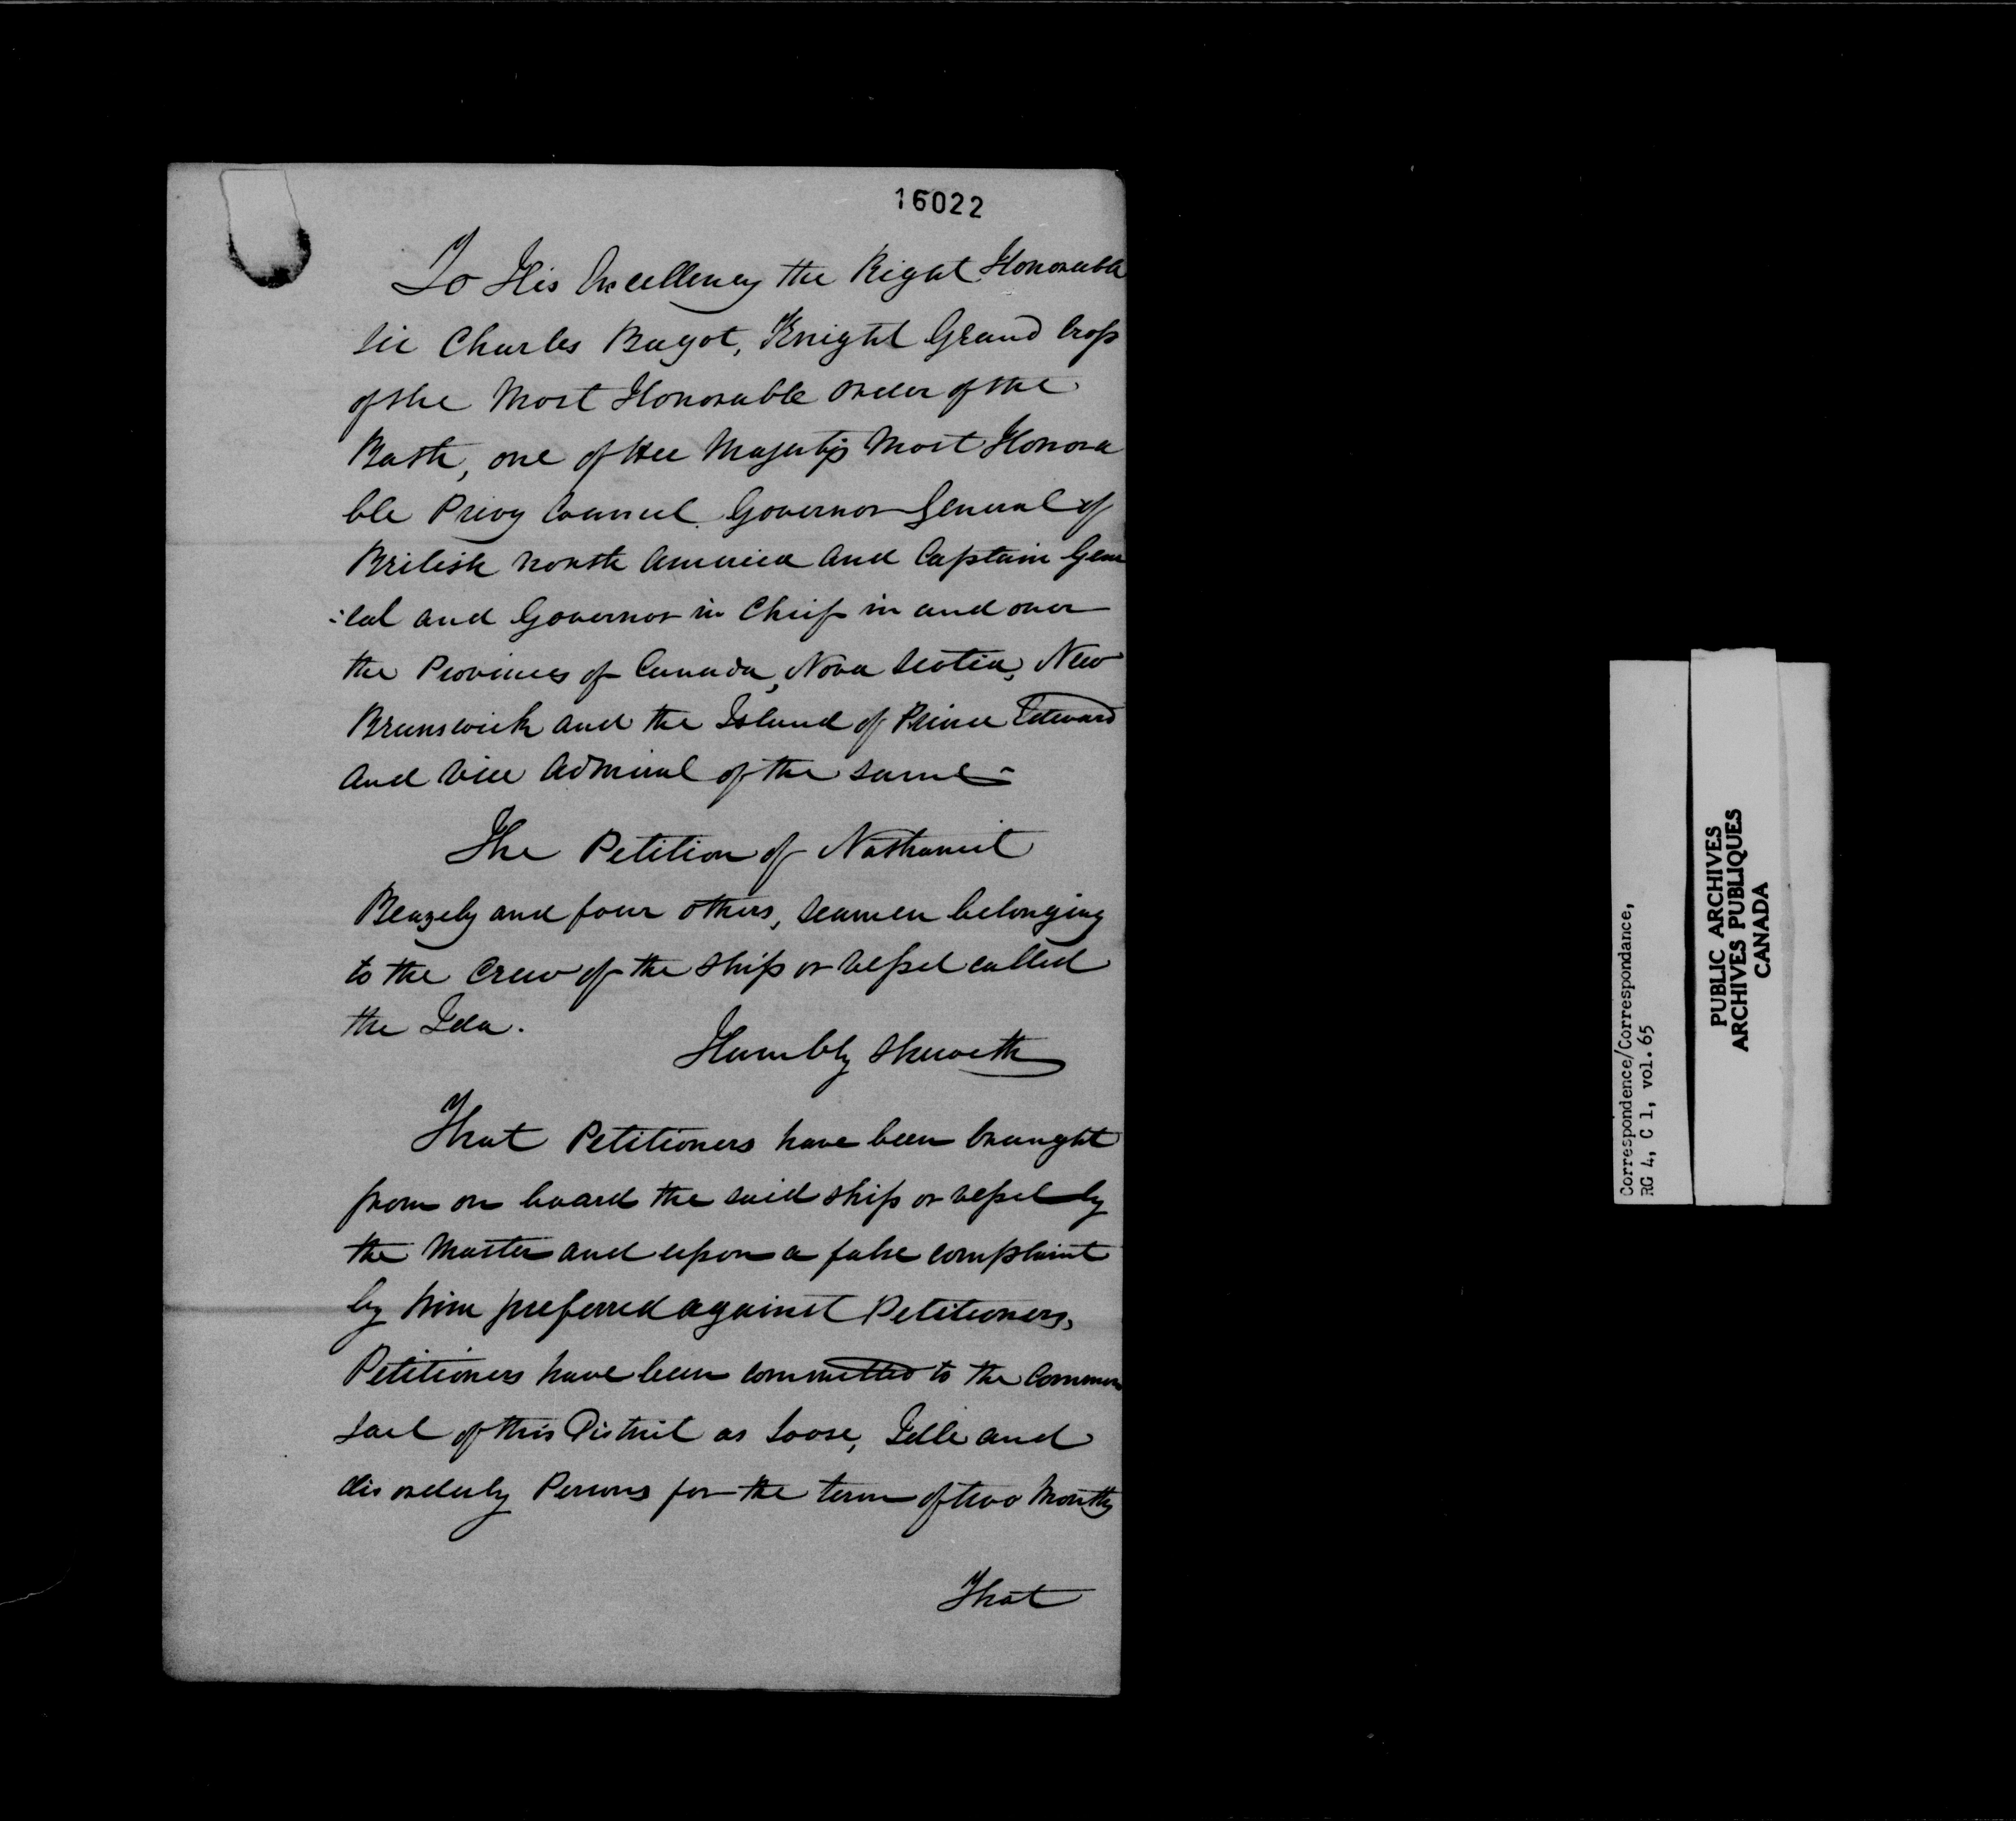 16022
To His Excellency the Right Honorable
Sir Charles Bagot, Knight Grand Cross
of the Most Honorable Order of the
Bath, one of Her Majesty's Most Honora
ble Privy Council. Governor General of
British North America and Captain Gene
:ral and Governor in Chief in and over
the Provinces of Canada, Nova Scotia, New
Brunswick and the Island of Prince Edward
and Vice Admiral of the same -
The Petition of Nathaniel
Beazely and four others, Seamen belonging
to the Crew of the Ship or Vessel called
the Ida.
Humbly Sheweth
That Petitioners have been brought
from on board the said Ship or Vessel by
the Master and upon a false complaint
by him preferred against Petitioners,
Petitioners have been committed to the Common
Gaol of this District as Loose, Idle and
disorderly Persons for the term of two Months
That
Correspondence/Correspondance,
RG 4, C 1, vol. 65
PUBLIC ARCHIVES
ARCHIVES PUBLIQUES
CANADA